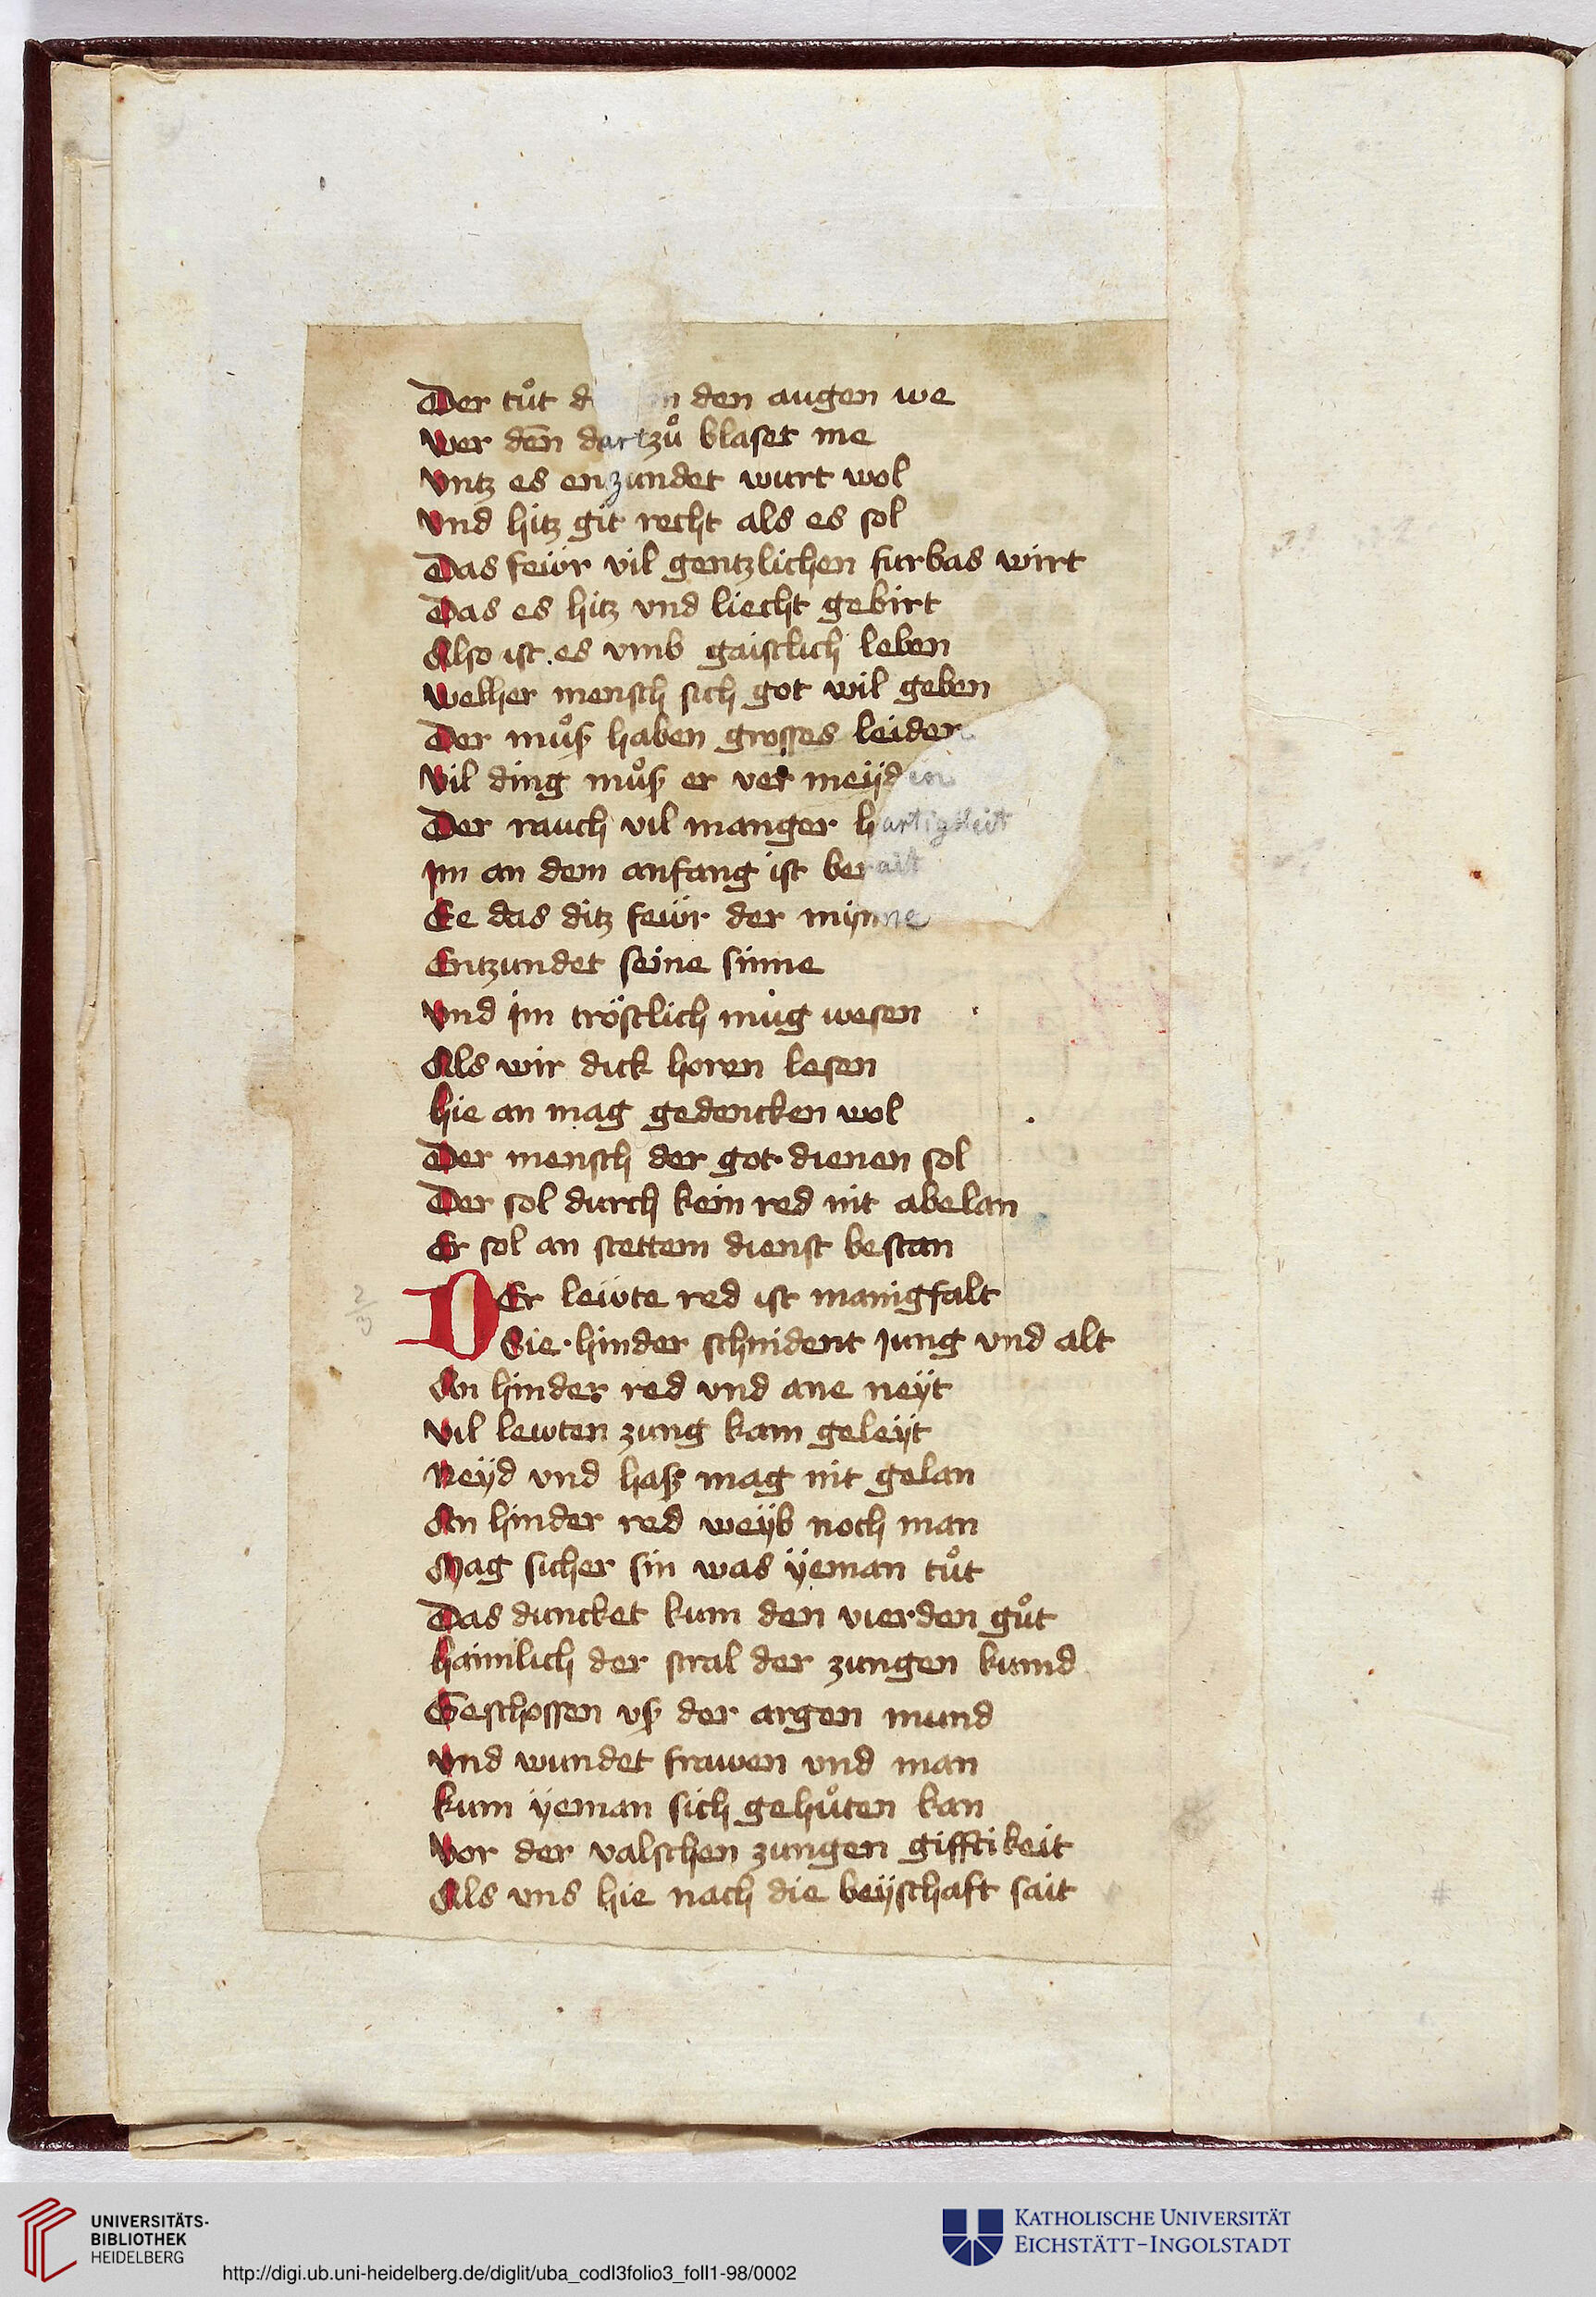 Der tůt d n den augen we
Wer den̄ dartzů blaset me
Vntz es enzundet wurt wol
Vnd hitz git recht als es sol
Das feẅr vil gentzlichen furbas wirt
Das es hitz vnd liecht gebirt
Also ist es vmb gaistlich leben
Welher mensch sich got wil geben
Der můß haben grosses leiden
Vil ding můß er ver meÿden
Der rauch vil manger hartigkeit
Im an dem anfang ist berait
Ee das ditz feẅr der minne
Entzundet seine sinne
Vnd im tröstlich müg wesen
Als wir dick horen lesen
hie an mag gedencken wol
Der mensch der got dienen sol
Der sol durch kein red nit abelan
Er sol an stettem dienst bestan
2/3
DEr leẅte red ist manigfalt
Sie hinder schnident jung vnd alt
An hinder red vnd ane neÿt
Vil lewten zung kam geleÿt
Neÿd vnd haß mag nit gelan
An hinder red weÿb noch man
Mag sicher sin was ÿeman tůt
Das duncket kum den vierden gůt
haimlich der stral der zungen kumd
Geschossen vß der argen mund
Vnd wundet frawen vnd man
kum ÿeman sich gehůten kan
Vor der valschen zungen gifftikeit
Als vns hie nach die beÿschaft sait
UNIVERSITÄTS-
BIBLIOTHEK
HEIDELBERG
http://digi.ub.uni-heidelberg.de/diglit/uba_codI3folio3_foll1-98/0002
KATHOLISCHE UNIVERSITÄT
EICHSTÄTT-INGOLSTADT